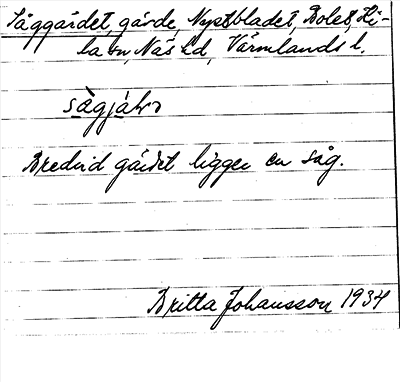 Såggärdet, gärde, Nystbladet, Bolet, Hi-
la sn, Näs hd, Värmlands l.
sàgjáḷơ
Bredvid gärdet ligger en såg.
Britta Johansson 1934